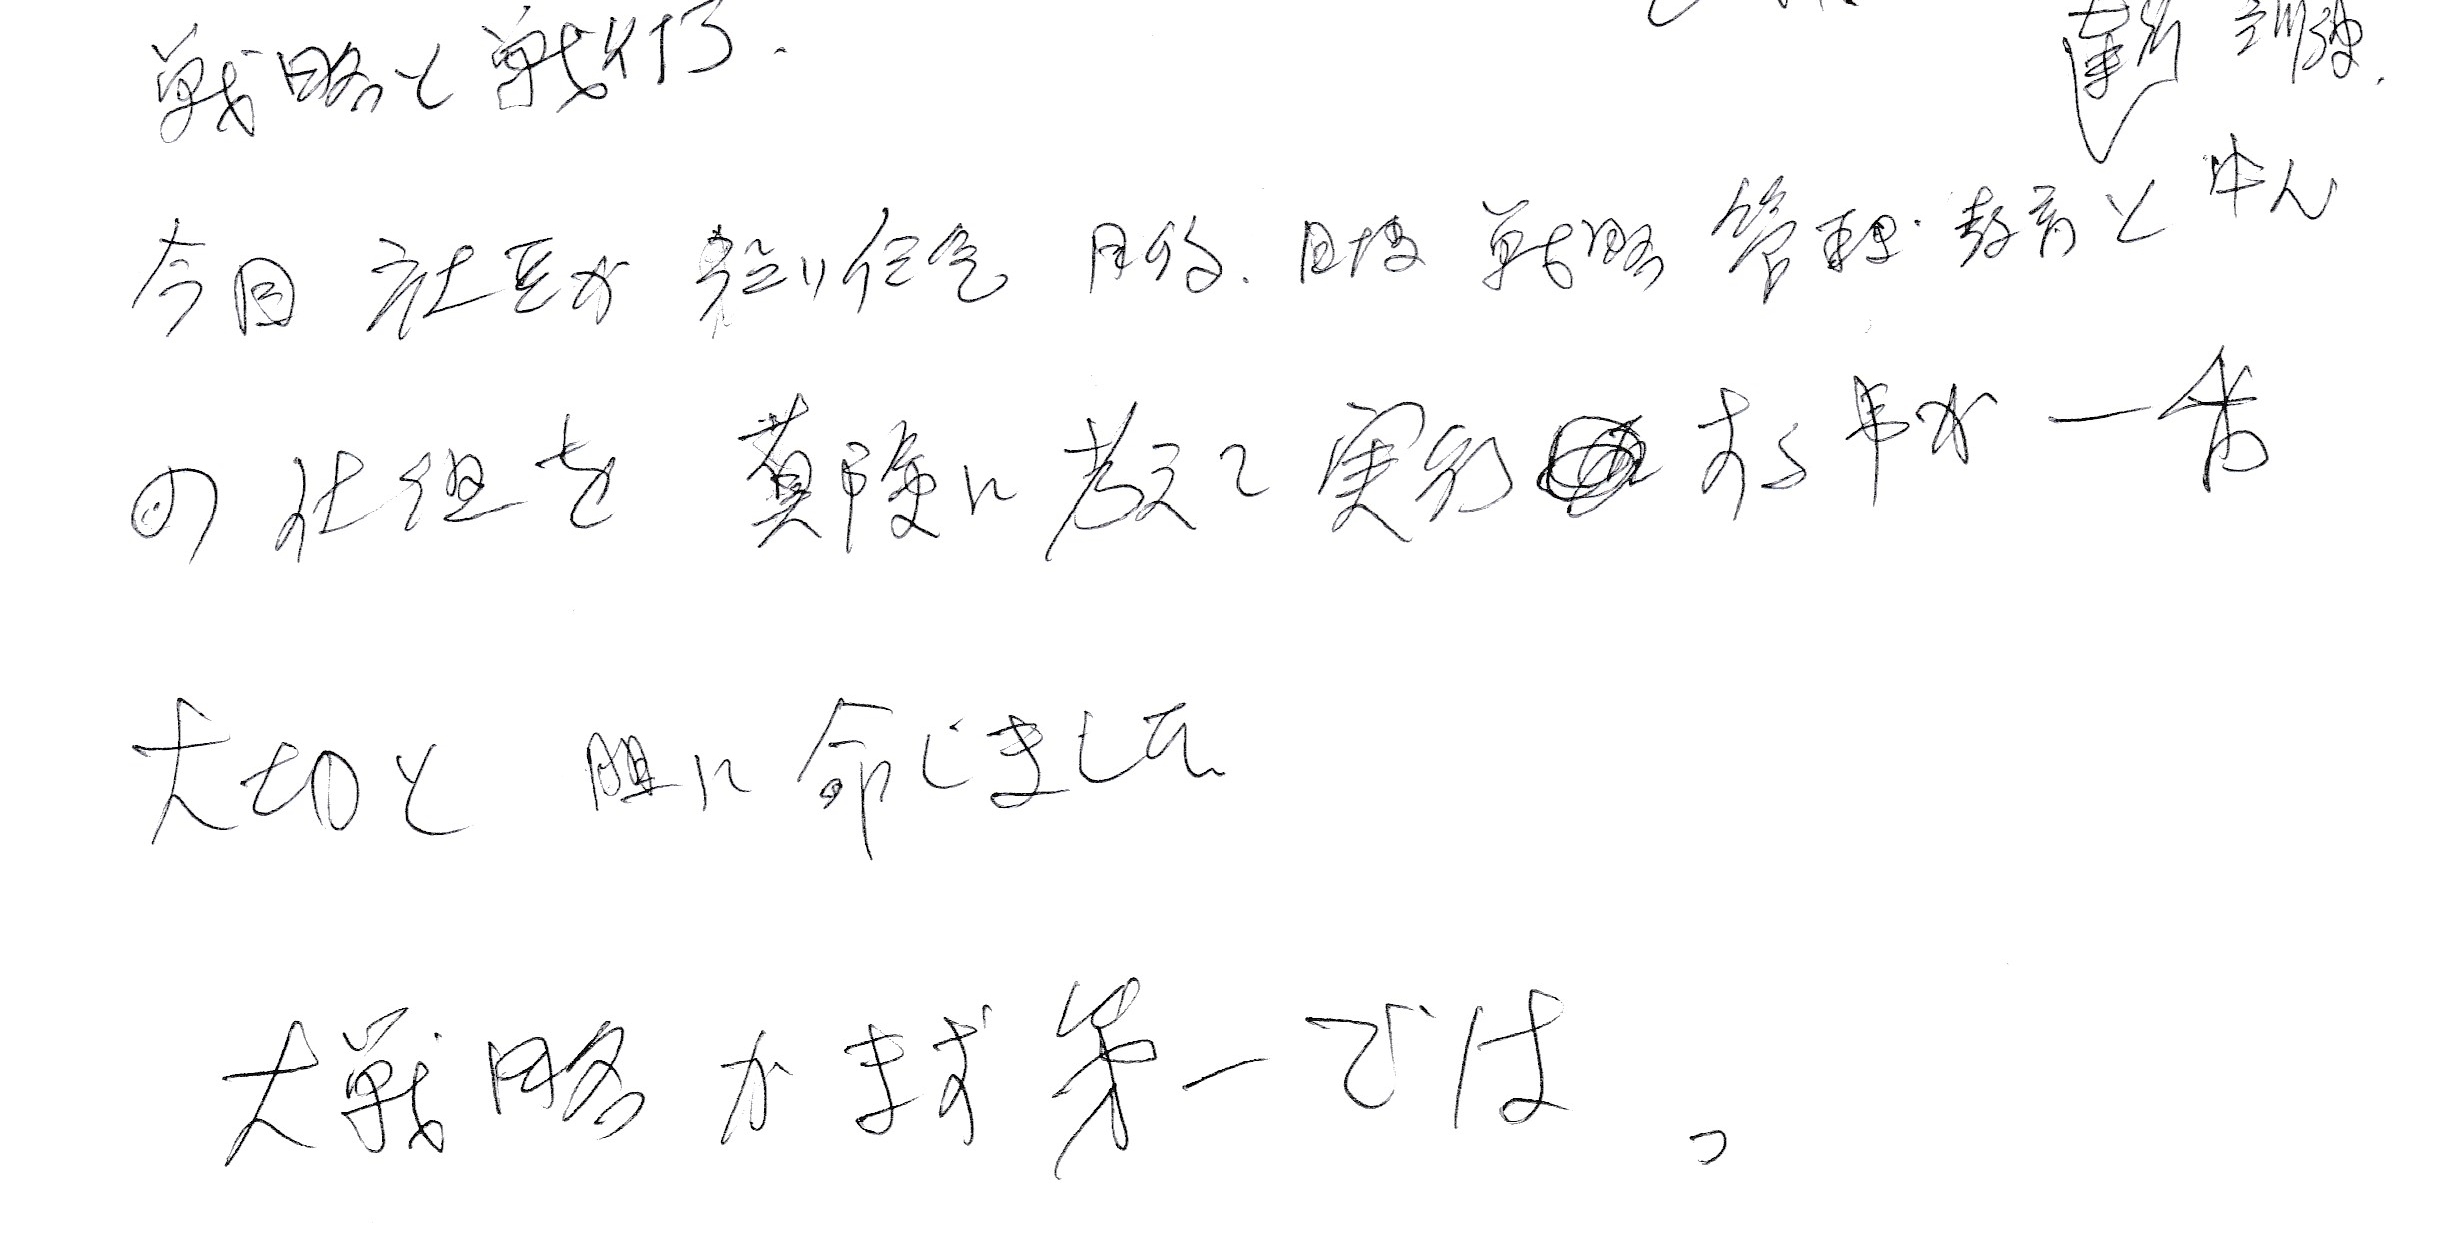 訓練.
戦略と戦術.
今回 社長が 役割任務 目的. 目標 戦略 管理・教育と 中心
の 仕組を 真険に 考えて 実行 する 事が 一番
大切と 胆に 命じました
大戦略が まず 第一では。